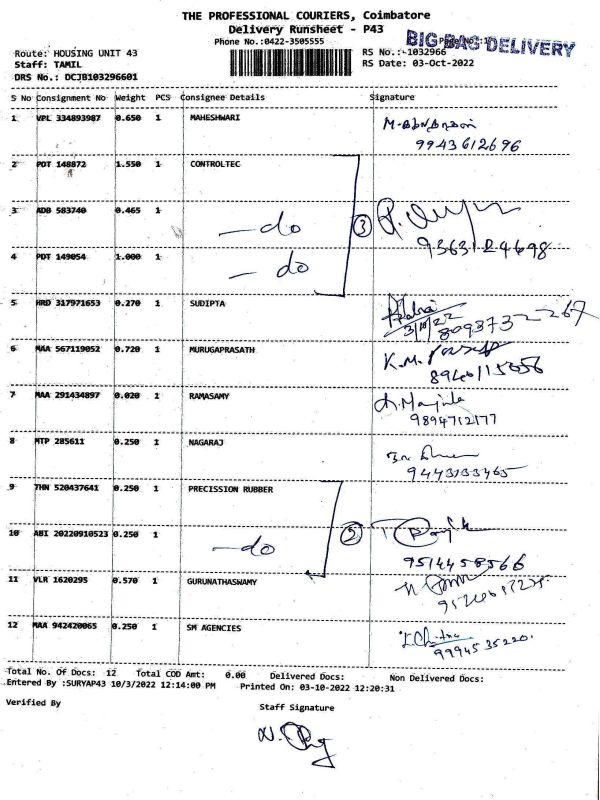 THE PROFESSIONAL COURIERS, Coimbatore
Delivery Runsheet - P43
Phone No.:0422-3505555
BIG BAG DELIVERY
Route: HOUSING UNIT 43
RS No.:-1032966
Staff: TAMIL
RS Date: 03-Oct-2022
DRS No.: DCJB103296601
S No Consignment No Weight PCS Consignee Details Signature
1 VPL 334893987 0.650 1 MAHESHWARI
9943612696
2 PDT 148872 1.550 1 CONTROLTEC
3 ADB 583740 0.465 1 - do ③
9363124698
4 PDT 149054 1.000 1 - do
5 HRD 317971653 0.270 1 SUDIPTA
3/10/22 8093732267
6 MAA 567119052 0.720 1 MURUGAPRASATH K.M.
7 MAA 291434897 0.020 1 RAMASAMY
9894712177
8 MTP 285611 0.250 1 NAGARAJ
9443133465
9 THN 520437641 0.250 1 PRECISSION RUBBER
10 ABI 20220910523 0.250 1 - do ②
9514458566
11 VLR 1620295 0.570 1 GURUNATHASWAMY
12 MAA 942420065 0.250 1 SM AGENCIES
9994535220.
Total No. Of Docs: 12 Total COD Amt: 0.00 Delivered Docs: Non Delivered Docs:
Entered By :SURYAP43 10/3/2022 12:14:00 PM Printed On: 03-10-2022 12:20:31
Verified By
Staff Signature